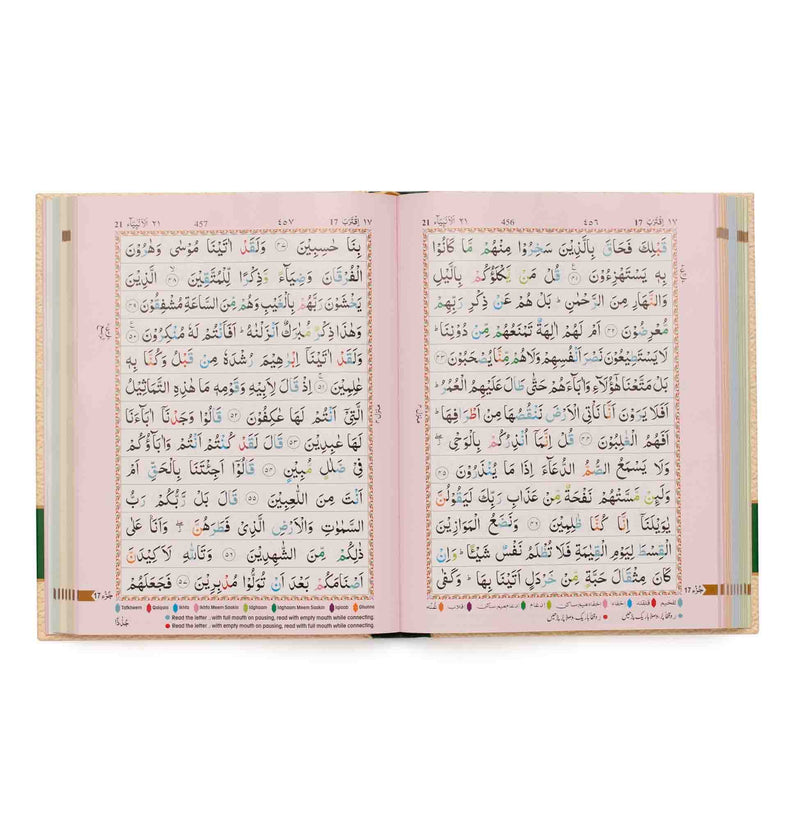 ١٧ اِقْتَرَبَ 17 ٤٥٦ 456 ٢١ اَلْاَنْۢبِيَآء 21
قَبْلِكَ فَحَاقَ بِالَّذِيْنَ سَخِرُوْا مِنْهُمْ مَّا كَانُوْا
بِهٖ يَسْتَهْزِءُوْنَ ﴿٤١﴾ قُلْ مَنْ يَّكْلَؤُكُمْ بِالَّيْلِ
وَالنَّهَارِ مِنَ الرَّحْمٰنِ ؕ بَلْ هُمْ عَنْ ذِكْرِ رَبِّهِمْ
مُّعْرِضُوْنَ ﴿٤٢﴾ اَمْ لَهُمْ اٰلِهَةٌ تَمْنَعُهُمْ مِّنْ دُوْنِنَا ؕ
لَا يَسْتَطِيْعُوْنَ نَصْرَ اَنْفُسِهِمْ وَلَا هُمْ مِّنَّا يُصْحَبُوْنَ ﴿٤٣﴾
بَلْ مَتَّعْنَا هٰٓؤُلَآءِ وَاٰبَآءَهُمْ حَتّٰى طَالَ عَلَيْهِمُ الْعُمُرُ ؕ
اَفَلَا يَرَوْنَ اَنَّا نَاْتِى الْاَرْضَ نَنْقُصُهَا مِنْ اَطْرَافِهَا ؕ
اَفَهُمُ الْغٰلِبُوْنَ ﴿٤٤﴾ قُلْ اِنَّمَآ اُنْذِرُكُمْ بِالْوَحْىِ ۖ
وَلَا يَسْمَعُ الصُّمُّ الدُّعَآءَ اِذَا مَا يُنْذَرُوْنَ ﴿٤٥﴾
وَلَئِنْ مَّسَّتْهُمْ نَفْحَةٌ مِّنْ عَذَابِ رَبِّكَ لَيَقُوْلُنَّ
يٰوَيْلَنَآ اِنَّا كُنَّا ظٰلِمِيْنَ ﴿٤٦﴾ وَنَضَعُ الْمَوَازِيْنَ
الْقِسْطَ لِيَوْمِ الْقِيٰمَةِ فَلَا تُظْلَمُ نَفْسٌ شَيْئًا ؕ وَاِنْ
كَانَ مِثْقَالَ حَبَّةٍ مِّنْ خَرْدَلٍ اَتَيْنَا بِهَا ؕ وَكَفٰى
جُزْء 17
تفخيم قلقله اخفاء اخفاءميم ساكن ادغام ادغام ميم ساكن اقلاب غنّه
١٧ اِقْتَرَبَ 17 ٤٥٧ 457 ٢١ اَلْاَنْۢبِيَآء 21
بِنَا حٰسِبِيْنَ ﴿٤٧﴾ وَلَقَدْ اٰتَيْنَا مُوْسٰى وَهٰرُوْنَ
الْفُرْقَانَ وَضِيَآءً وَّذِكْرًا لِّلْمُتَّقِيْنَ ﴿٤٨﴾ الَّذِيْنَ
يَخْشَوْنَ رَبَّهُمْ بِالْغَيْبِ وَهُمْ مِّنَ السَّاعَةِ مُشْفِقُوْنَ ﴿٤٩﴾
وَهٰذَا ذِكْرٌ مُّبٰرَكٌ اَنْزَلْنٰهُ ؕ اَفَاَنْتُمْ لَهٗ مُنْكِرُوْنَ ﴿٥٠﴾
وَلَقَدْ اٰتَيْنَآ اِبْرٰهِيْمَ رُشْدَهٗ مِنْ قَبْلُ وَكُنَّا بِهٖ
عٰلِمِيْنَ ﴿٥١﴾ اِذْ قَالَ لِاَبِيْهِ وَقَوْمِهٖ مَا هٰذِهِ التَّمَاثِيْلُ
الَّتِىْٓ اَنْتُمْ لَهَا عٰكِفُوْنَ ﴿٥٢﴾ قَالُوْا وَجَدْنَآ اٰبَآءَنَا
لَهَا عٰبِدِيْنَ ﴿٥٣﴾ قَالَ لَقَدْ كُنْتُمْ اَنْتُمْ وَاٰبَآؤُكُمْ
فِىْ ضَلٰلٍ مُّبِيْنٍ ﴿٥٤﴾ قَالُوْٓا اَجِئْتَنَا بِالْحَقِّ اَمْ
اَنْتَ مِنَ اللّٰعِبِيْنَ ﴿٥٥﴾ قَالَ بَلْ رَّبُّكُمْ رَبُّ
السَّمٰوٰتِ وَالْاَرْضِ الَّذِىْ فَطَرَهُنَّ ۖ وَاَنَا عَلٰى
ذٰلِكُمْ مِّنَ الشّٰهِدِيْنَ ﴿٥٦﴾ وَتَاللّٰهِ لَاَكِيْدَنَّ
اَصْنَامَكُمْ بَعْدَ اَنْ تُوَلُّوْا مُدْبِرِيْنَ ﴿٥٧﴾ فَجَعَلَهُمْ
جُزْء 17
Tafkheem Qalqala Ikhfa Ikhfa Meem Saakin Idghaam Idghaam Meem Saakin Iqlaab Ghunna
Read the letter ر with full mouth on pausing, read with empty mouth while connecting.
Read the letter ر with empty mouth on pausing, read with full mouth while connecting.
جُذٰذًا